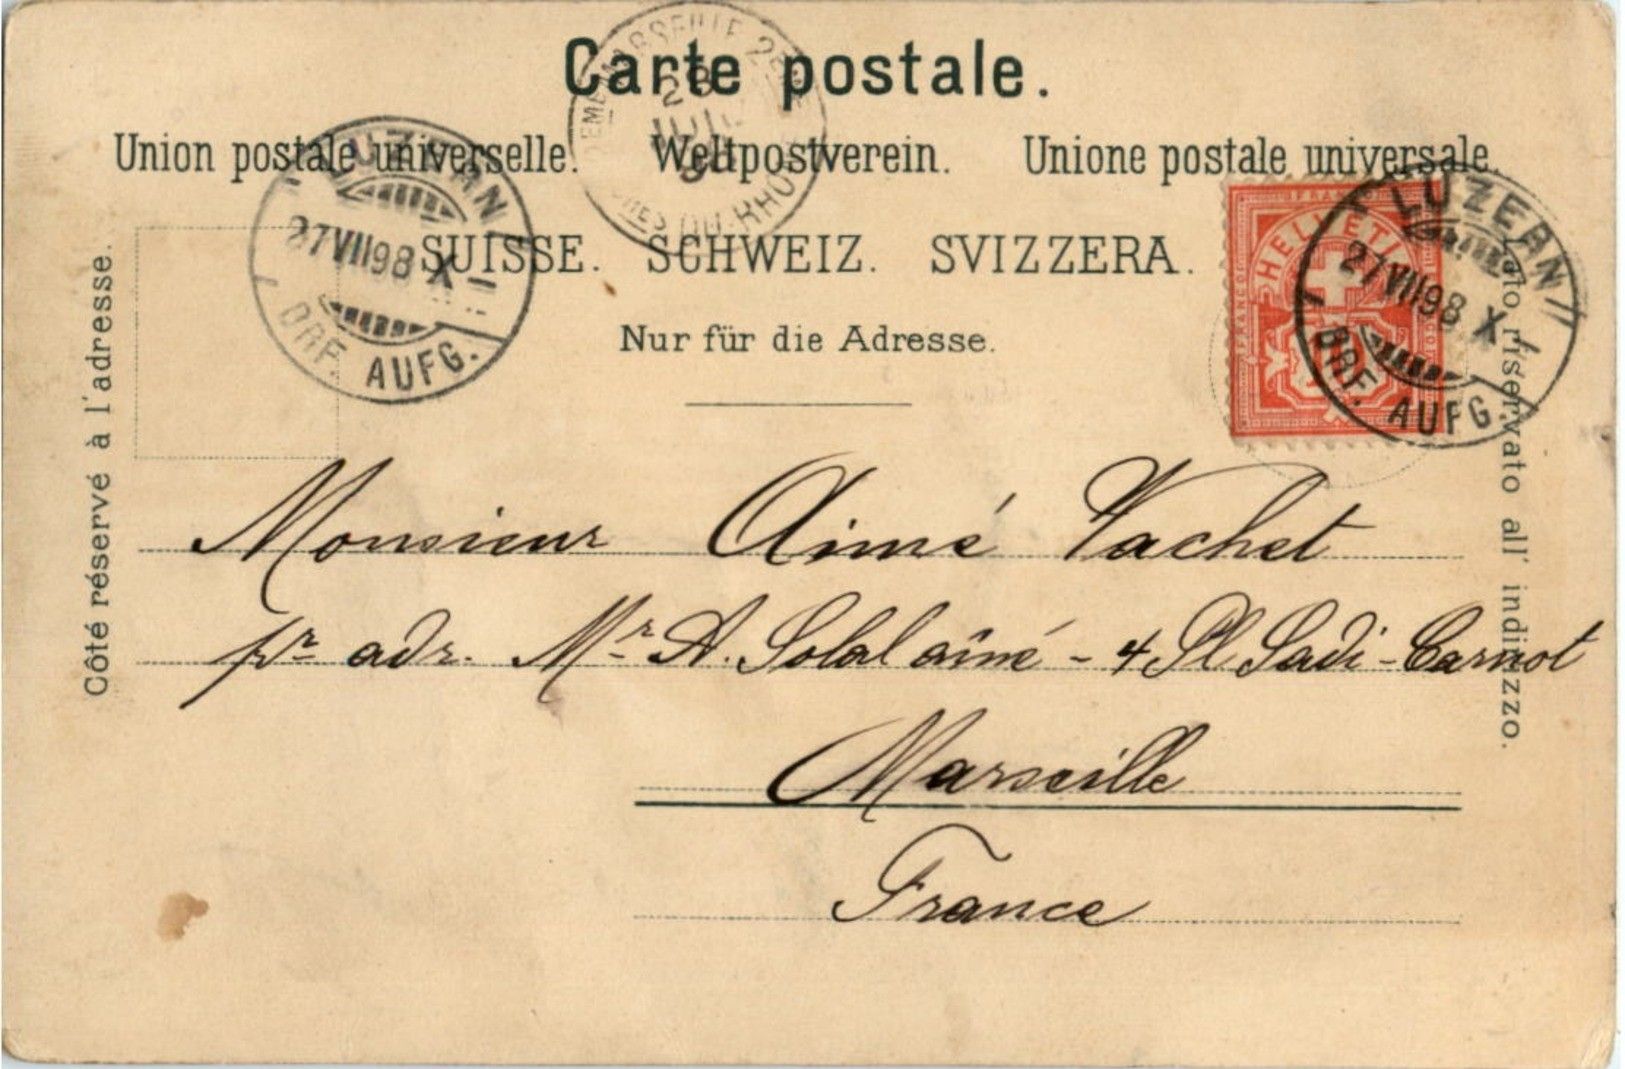 Carte postale.
Union postale universelle. Weltpostverein. Unione postale universale.
SUISSE. SCHWEIZ. SVIZZERA.
Nur für die Adresse.
Côté réservé à l'adresse.
riservato all' indirizzo.
LUZERN
27 VII 98 X
BRF. AUFG.
MARSEILLE
28
JUIL
DU-RHÔNE
FRANCO
HELVETIA
10
FRANCO
LUZERN
27 VII 98 X
BRF. AUFG.
Monsieur Aimé Vachet
pr adr. Mr A. Solal aîné - 4 Pl Sadi-Carnot
Marseille
France